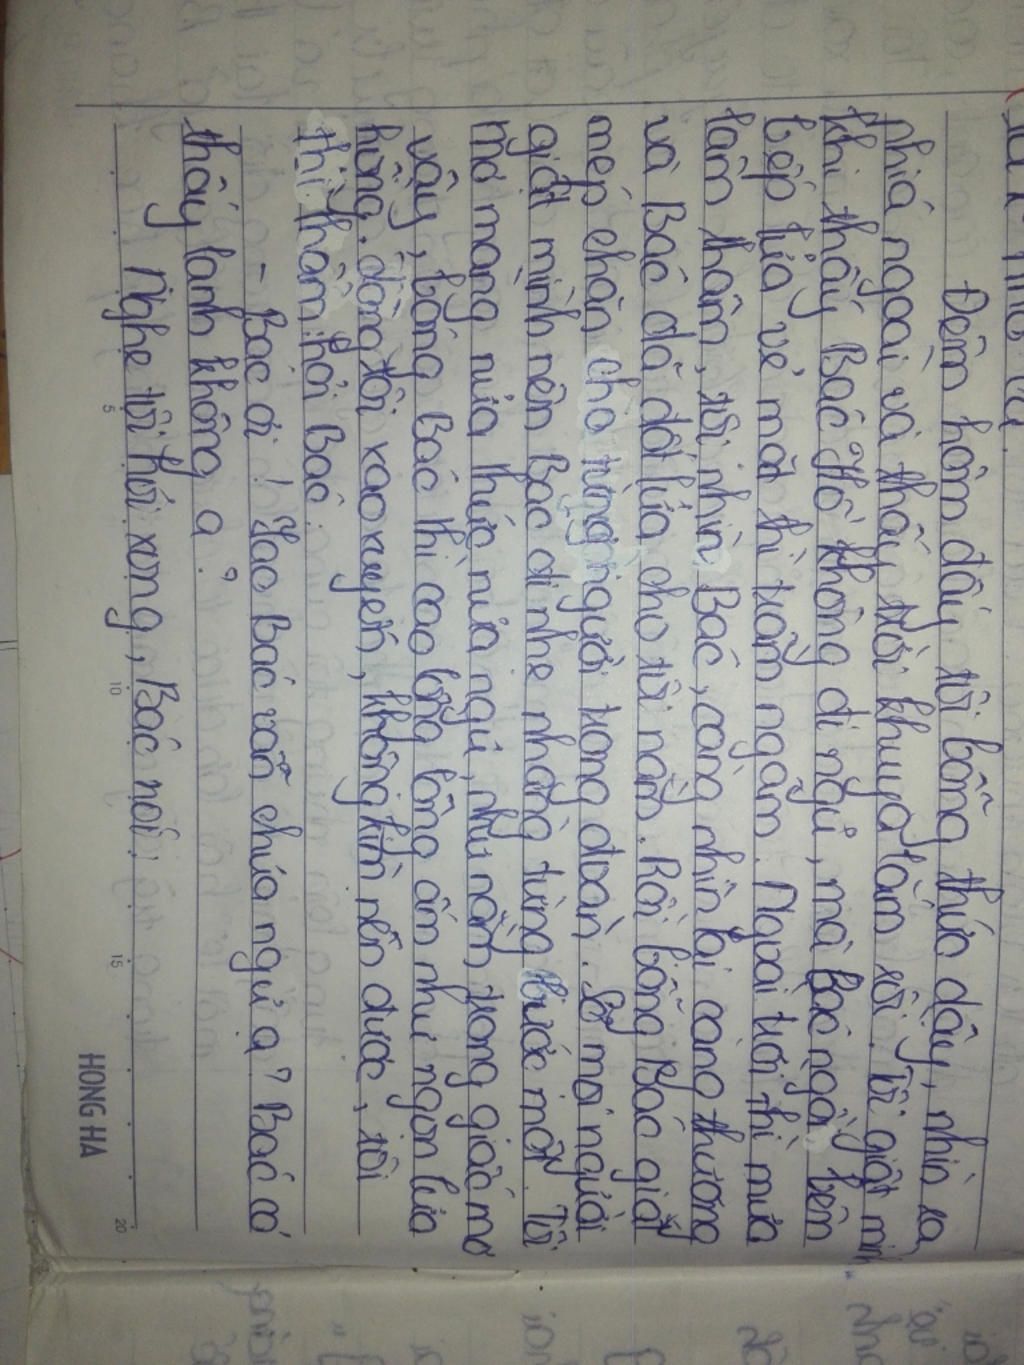 Đêm hôm đấy, tôi bỗng thức dậy, nhìn ra
phía ngoài và thấy trời khuya lắm rồi. Tôi giật mình
khi thấy Bác Hồ không đi ngủ, mà Bác ngồi bên
bếp lửa vẻ mặt thì trầm ngâm. Ngoài trời thì mưa
lâm thâm, tôi nhìn Bác, càng nhìn lại càng thương
và Bác đã đốt lửa cho tôi nằm. Rồi bỗng Bác giật
mép chăn cho từng người trong đoàn. Sợ mọi người
giật mình nên Bác đi nhẹ nhàng từng bước một. Tôi
mơ màng nửa thức nửa ngủ, như nằm trong giấc mơ
vậy, bóng Bác thì cao lồng lộng ấm như ngọn lửa
hồng. dòng tôi xao xuyến, không kìm nén được, tôi
thì thầm hỏi Bác.
- Bác ơi! Sao Bác vẫn chưa ngủ ạ? Bác có
thấy lạnh không ạ?
Nghe tôi hỏi xong, Bác nói:
5
10
15
20
HONG HA